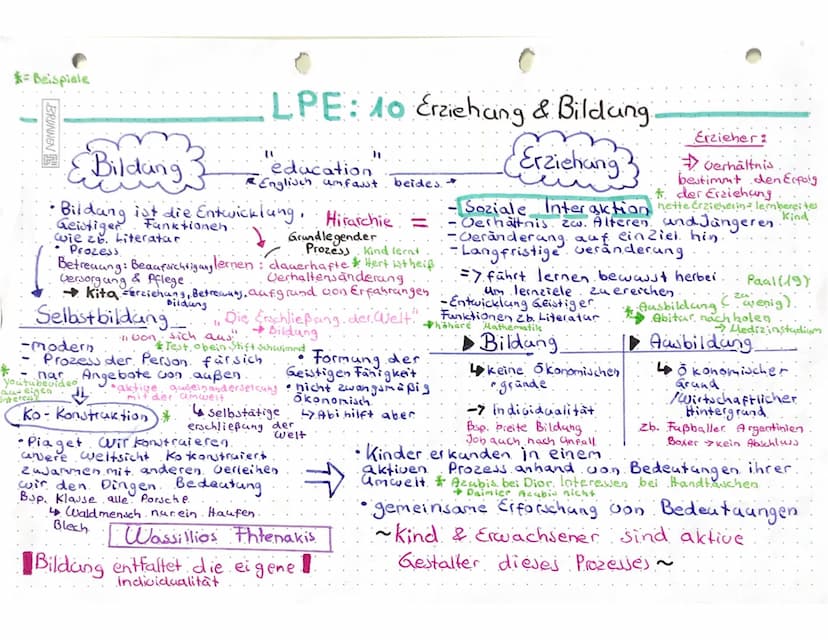 *= Beispiele
BRUNNEN
LPE: 10 Erziehung & Bildung
Bildung
"education"
Englisch umfasst beides
Erziehung
Erzieher:
⇒ Verhältnis
bestimmt den Erfolg
der Erziehung
* nette Erzieherin = lernbereites
Kind
• Bildung ist die Entwicklung,
Geistiger Funktionen
wie zb. Literatur
• Prozess
Betreuung: Beaufsichtigung
Versorgung & Pflege
→ Kita = Erziehung, Betreuung,
Bildung
Hirarchie =
Grundlegender
Prozess
Kind lernt
* Herd ist heiß
lernen: dauerhafte
Verhaltensänderung
aufgrund von Erfahrungen
"Die Erschließung der Welt"
→ Bildung
- Soziale Interaktion
- Verhältnis zw. Älteren und Jüngeren
- Veränderung auf ein Ziel hin
- Langfristige Veränderung
=> führt lernen bewusst herbei
um lernziele zu ereichen
Paal (19)
- Entwicklung Geistiger
Funktionen zb. Literatur
→ höhere Mathematik
* Ausbildung (zu
wenig)
→ Abitur nachholen
→ Medizinstudium
Selbstbildung
"von sich aus"
* Test, ob ein Stift schwimmt
- modern
- Prozess der Person für sich
- nur Angebote von außen
* Youtubevideo
• aktive auseinandersetzung
mit der umwelt
↳ Selbstätige
erschließung der
Welt
• Formung der
Geistigen Fähigkeit
• nicht zwangsmäßig
ökonomisch
↳ Abi hilft aber
▶ Bildung
↳ keine ökonomischen
gründe
→ Individualität
Bsp. breite Bildung
Job auch nach Unfall
▶ Ausbildung
↳ ökonomischer
Grund
/Wirtschaftlicher
Hintergrund
zb. Fußballer Argentinien
Boxer → kein Abschluss
Ko-Konstruktion *
• Piaget wir konstruieren
unsere Weltsicht Kokonstruiert
zusammen mit anderen verleihen
wir den Dingen Bedeutung
Bsp. Klasse alle Porsche
↳ Waldmensch nur ein Haufen
Blech
Wassillios Fhtenakis
Bildung entfaltet die eigene !
Individualität
⇒
• Kinder erkunden in einem
aktiven Prozess anhand von Bedeutungen ihrer
Umwelt * Azubis bei Dior, Interessen bei Handtaschen
→ Daimler Azubis nicht
• gemeinsame Erforschung von Bedeutuungen
~ Kind & Erwachsener sind aktive
Gestalter dieses Prozesses ~